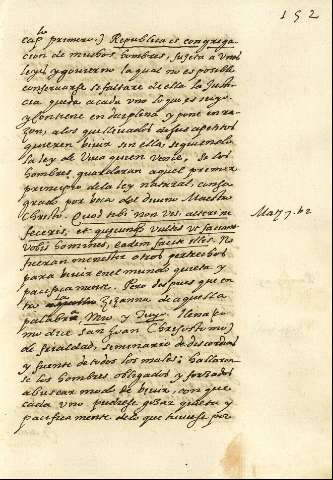 152
lo
cap primero.) Republica es congrega
cion de muchos hombres, sujeta a unas
leyes y govierno la qual no es posible
conservarse si faltare de ella la Justi
cia que da a cada uno lo que es suyo
y contiene en disciplina y pone en ra
zon, a los que llevados de sus apetitos
quieren vivir sin ella, siguiendo
la ley de viva quien vence, si los
hombres guardaran aquel primer
principio de la ley natural, consa
grado por boca del divino Maestro
Christo. Quod tibi non vis alteri ne
feceris, et quecunque vultis ut faciant
vobis homines, eadem facite illis. No
fueran menester otros pertrechos
para vivir en el mundo quieta y
pacificamente. Pero despues que en
tro la zizanna de aquella
palabra Mio y Tuyo, llena (co
mo dice san Juan Chrisostomo)
de frialdad, seminario de discordias
y fuente de todos los males; hallaron
se los hombres obligados y forzados
a buscar modo de vivir con que
cada uno pudiese gozar quieta y
pacificamente de lo que tuviese por
Mat. 7. 12